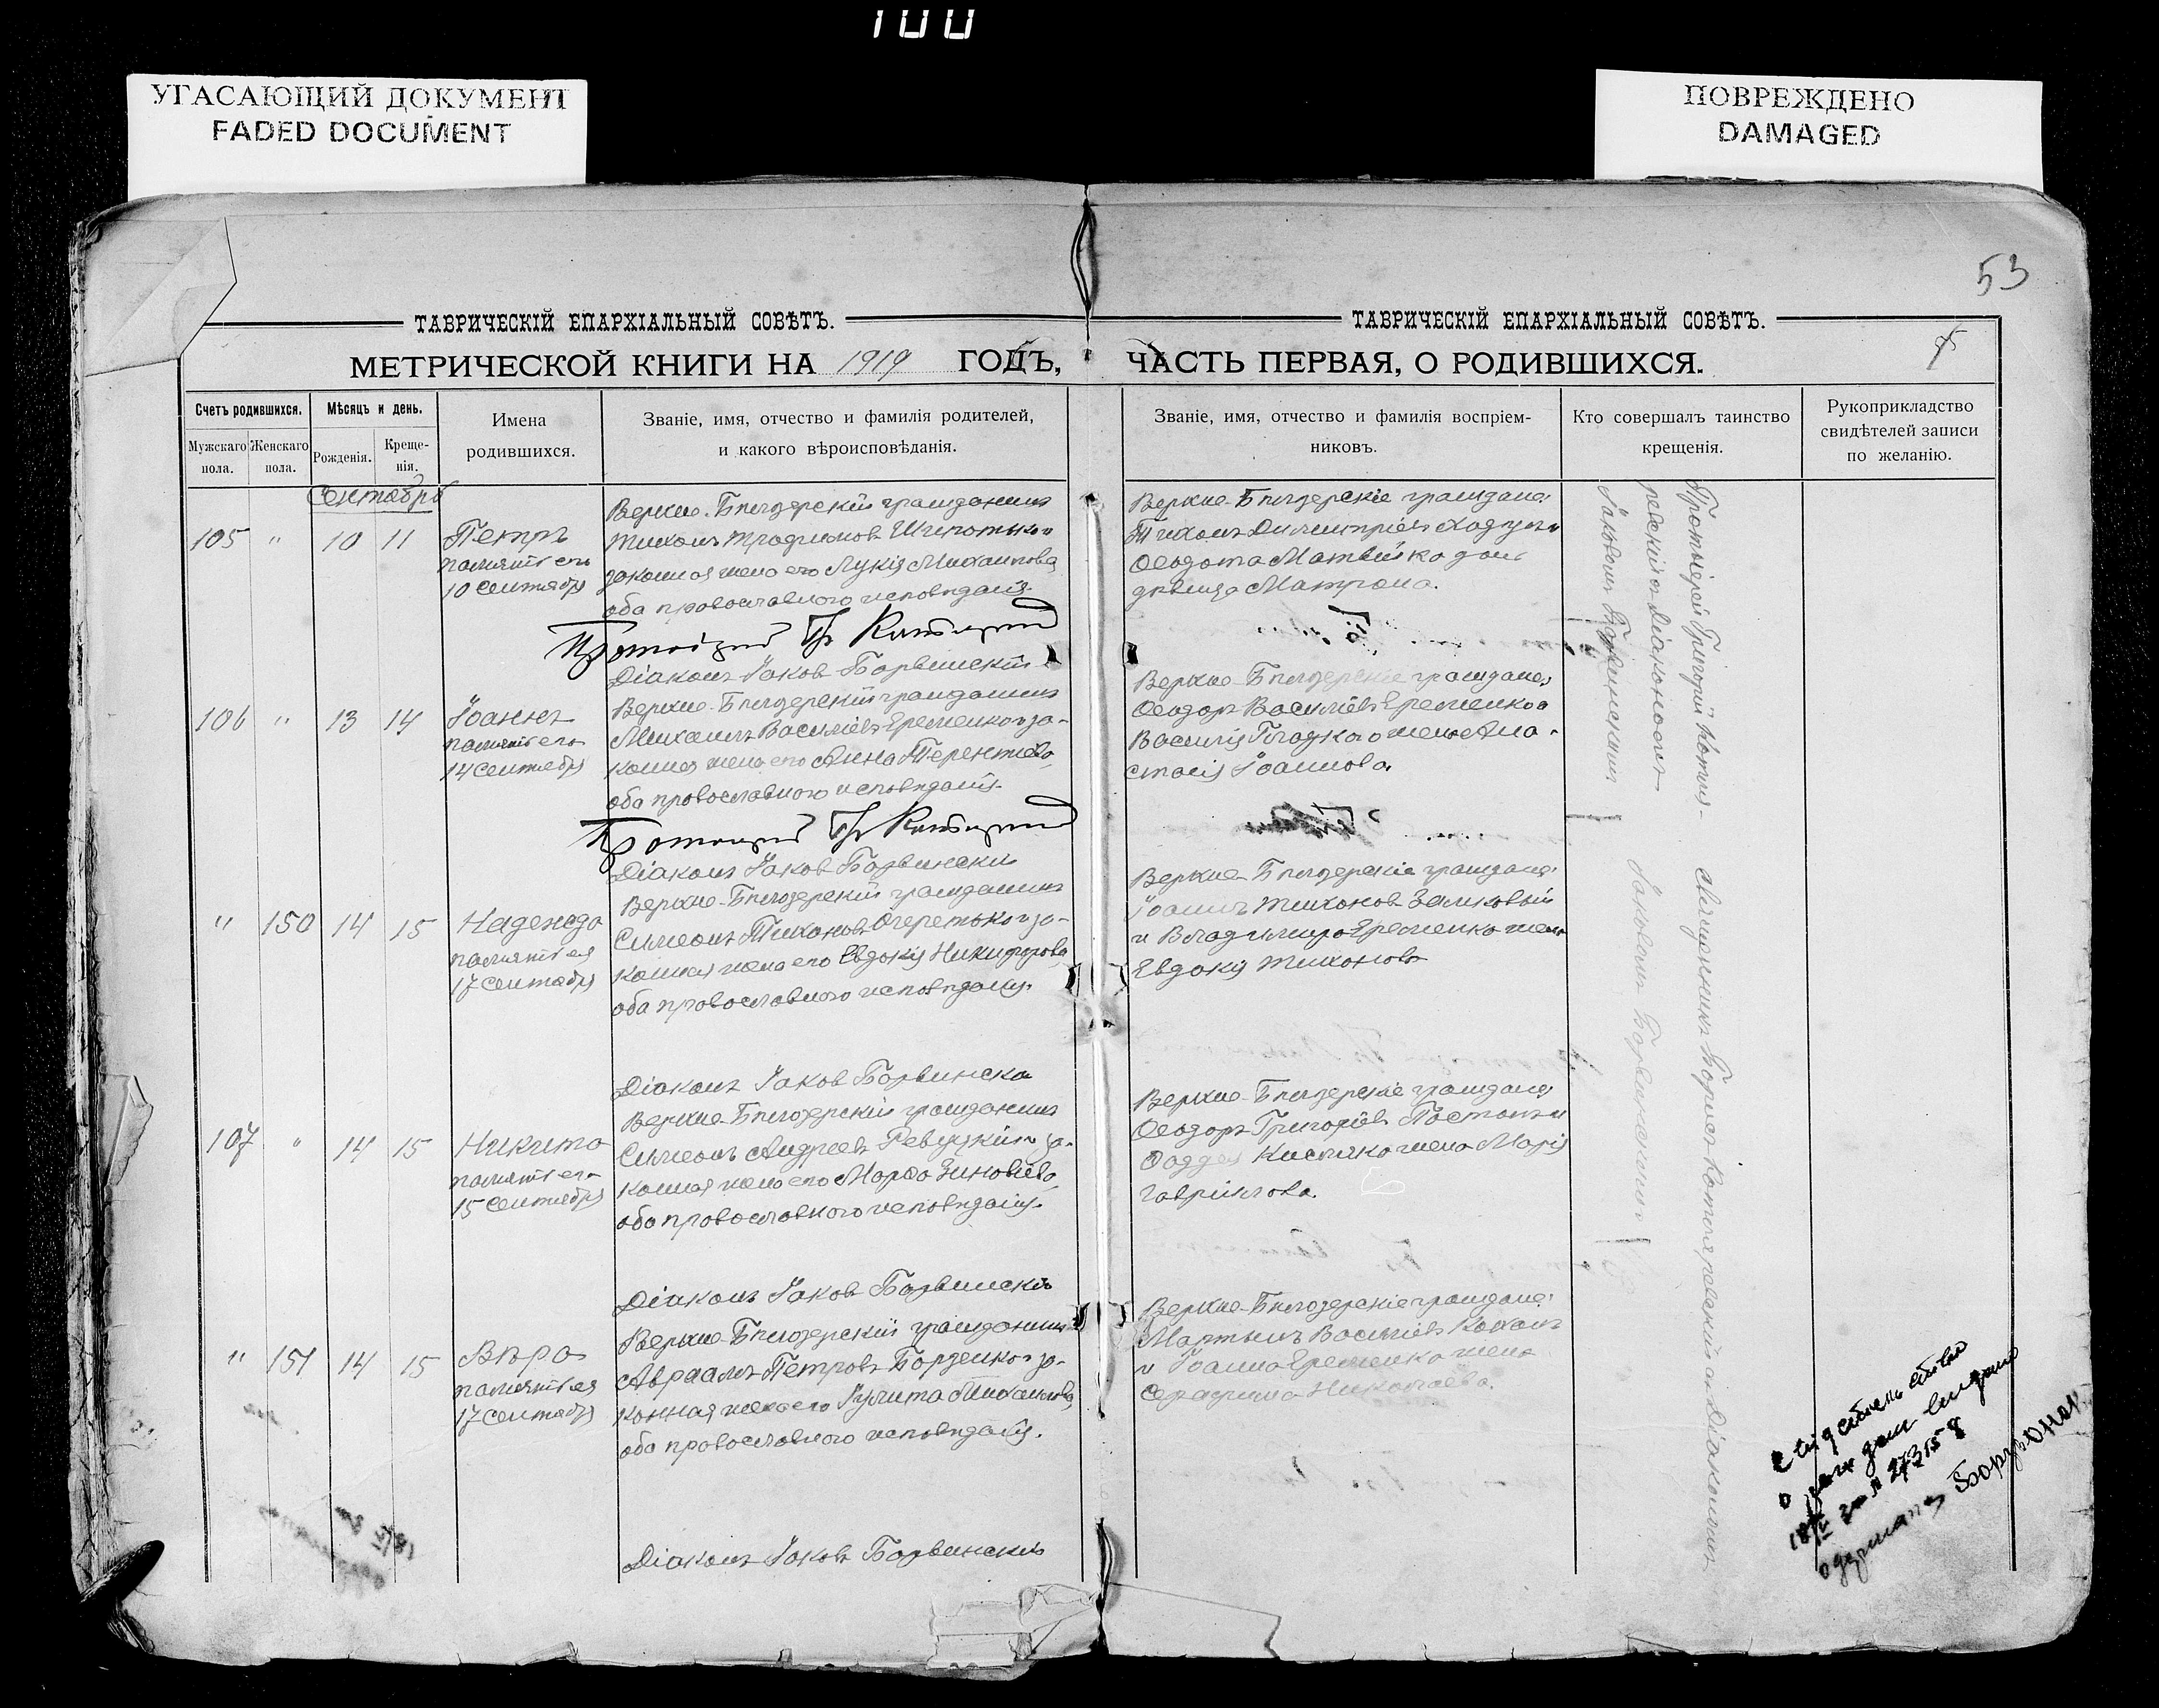 100
УГАСАЮЩИЙ ДОКУМЕНТ
FADED DOCUMENT
ПОВРЕЖДЕНО
DAMAGED
53
ТАВРИЧЕСКІЙ ЕПАРХІАЛЬНЫЙ СОВѢТЪ.
ТАВРИЧЕСКІЙ ЕПАРХІАЛЬНЫЙ СОВѢТЪ.
МЕТРИЧЕСКОЙ КНИГИ НА 1919 ГОДЪ,
ЧАСТЬ ПЕРВАЯ, О РОДИВШИХСЯ.
Счетъ родившихся.
Мужскаго пола.
Женскаго пола.
Мѣсяцъ и день.
Рожденія.
Креще-
нія.
Имена
родившихся.
Званіе, имя, отчество и фамилія родителей,
и какого вѣроисповѣданія.
Званіе, имя, отчество и фамилія воспріем-
никовъ.
Кто совершалъ таинство
крещенія.
Рукоприкладство
свидѣтелей записи
по желанію.
Сентябрь
105 " 10 11
Петръ
память его
10 Сентября
Верхне-Бѣлозерскій гражданинъ
Тихонъ Трофимовъ и
законная жена его Лукія Михаилова
оба православнаго исповѣданія.
Протоіерей Гр
Діаконъ Іаковъ Борвинскій
Верхне-Бѣлозерскіе граждане:
Тихонъ Димитріевъ и
Ѳеодота дочь
дѣвица Матрона.
106 " 13 14
Іоаннъ
память его
14 Сентября
Верхне-Бѣлозерскій гражданинъ
Михаилъ Василіевъ Еременко и за-
конная жена его Анна Терентіева,
оба православнаго исповѣданія.
Протоіерей Гр
Діаконъ Іаковъ Борвинскій
Верхне-Бѣлозерскіе граждане:
Ѳеодоръ Василіевъ Еременко и
Василія Гладкаго жена Ана-
стасія Іоаннова.
" 150 14 15
Надежда
память ея
17 Сентября
Верхне-Бѣлозерскій гражданинъ
Симеонъ Тихоновъ Очеретько и за-
конная жена его Евдокія Никифорова,
оба православнаго исповѣданія.
Діаконъ Іаковъ Борвинскій
Верхне-Бѣлозерскіе граждане:
Іоаннъ Тихоновъ Заликовый
и Владимира Еременко жена
Евдокія Тихонова
107 " 14 15
Никита
память его
15 Сентября
Верхне-Бѣлозерскій гражданинъ
Симеонъ Андреевъ Ревуцкій и за-
конная жена его Марѳа Зиновіева,
оба православнаго исповѣданія.
Діаконъ Іаковъ Борвинскій
Верхне-Бѣлозерскіе граждане:
Ѳеодоръ Григоріевъ и
Ѳаддея Кисляка жена Марія
Гавріилова.
" 151 14 15
Вѣра
память ея
17 Сентября
Верхне-Бѣлозерскій гражданинъ
Авраамъ Петровъ Борзенко и за-
конная жена его Іулита Михаилова,
оба православнаго исповѣданія.
Діаконъ Іаковъ Борвинскій
Верхне-Бѣлозерскіе граждане:
Мартынъ Василіевъ Коханъ
и Іоанна Еременка жена
Серафима Николаева.
Протоіерей Григорій Котля-
ревскій съ Діакономъ
Іаковомъ Борвинскимъ
Священникъ Борисъ Котляревскій съ Діакономъ
Іаковомъ Борвинскимъ.